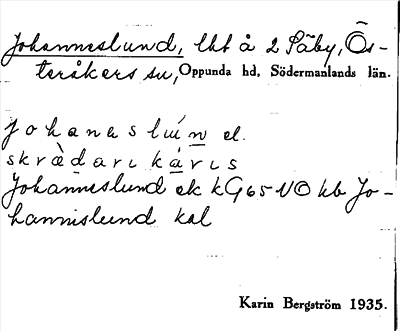 Johanneslund, lht å 2 Säby, Ös-
teråkers sn, Oppunda hd, Södermanlands län.
johanəslún̲ el.
skrὰdarɩ ká̲rɩs
Johanneslund ek kG65 NO kb Jo-
hannislund kal
Karin Bergström 1935.